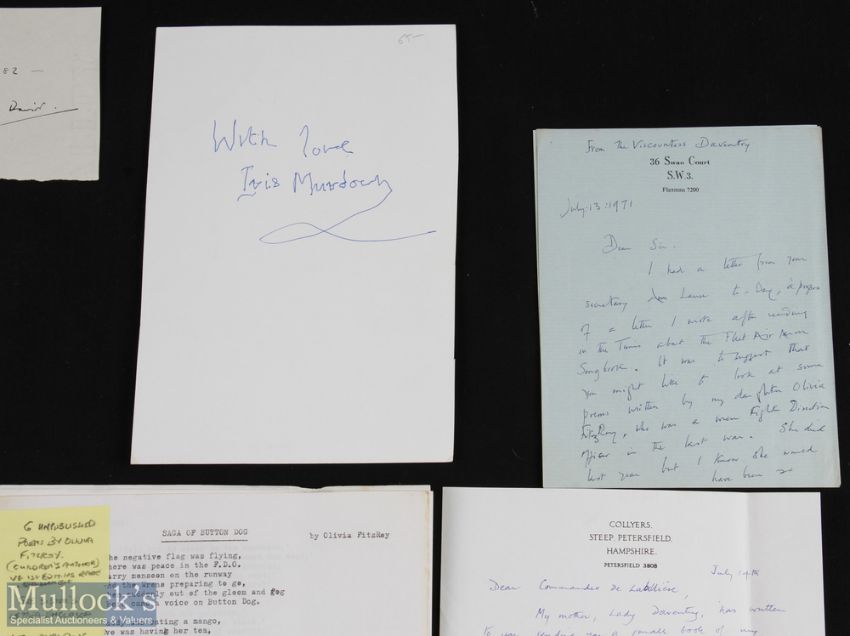 82 –
David.
65–
With love
Iris Murdoch
From the Viscountess Daventry
36 Swan Court
S.W.3.
Flaxman 7200
July.13.1971
Dear Sir.
I had a letter from your
secretary Lance to-Day, à propos
of a letter I wrote after reading
in the Times about the Fleet Air Arm
Songbook. It was to suggest that
you might like to look at some
poems written by my daughter Olivia
FitzRoy, who was a wren Fight Direction
officer in the last war. She died
last year but I know she would
have been so
6 UNPUBLISHED
POEMS BY OLIVIA
FITZROY.
(CHILDREN'S AUTHOR)
SAGA OF BUTTON DOG
by Olivia FitzRoy
he negative flag was flying,
here was peace in the F.D.O.
arry monsoon on the runway
nd the Wrens preparing to go,
denly out of the gloom and gog
came a voice on Button Dog.
erating a mango,
ve was having her tea,
COLLYERS,
STEEP PETERSFIELD,
HAMPSHIRE.
PETERSFIELD 3808
July 19th
Dear Commander de Labillière,
My mother, Lady Daventry, has written
to you sending you a small book of my
Mullock's
Specialist Auctioneers & Valuers